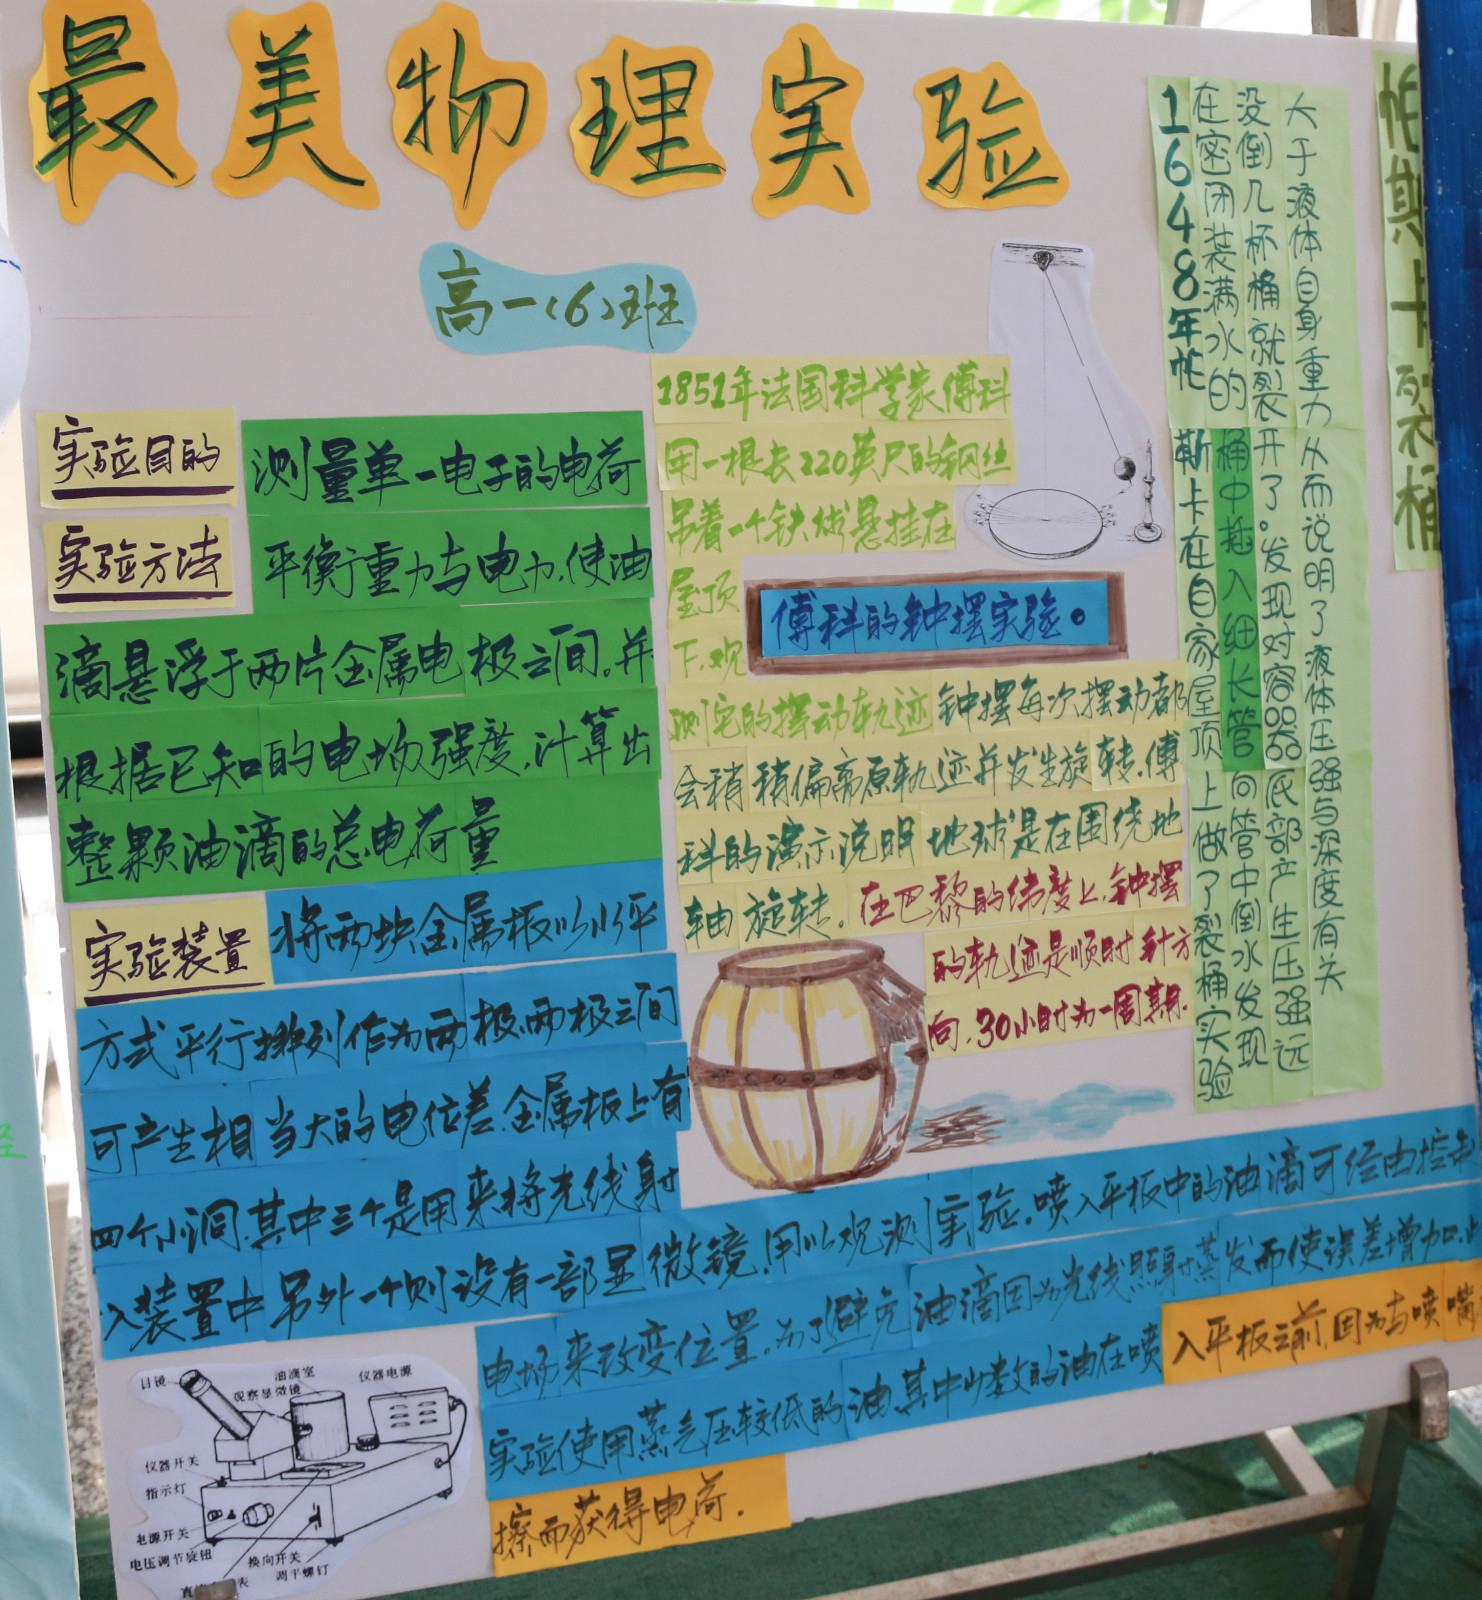 最美物理实验
高一(6)班
实验目的
测量单一电子的电荷
实验方法
平衡重力与电力,使油
滴悬浮于两片金属电极之间。并
根据已知的电场强度,计算出
整颗油滴的总电荷量
实验装置
将两块金属板以水平
方式平行排列作为两极,两极之间
可产生相当大的电位差.金属板上有
四个小洞.其中三个是用来将光线射
入装置中另外一个则设有一部显微镜,用以观测实验.喷入平板中的油滴可经由控制
电场来改变位置.为了避免油滴因为光线照射蒸发而使误差增加.
实验使用蒸气压较低的油.其中少数的油在喷入平板之前,因为与喷嘴
擦而获得电荷.
1851年法国科学家傅科
用一根长220英尺的钢丝
吊着一个铁球悬挂在
屋顶
下.观
测它的摆动轨迹 钟摆每次摆动都
会稍稍偏离原轨迹并发生旋转.傅
科的演示说明地球是在围绕地
轴旋转.在巴黎的纬度上,钟摆
的轨迹是顺时针方
向,30小时为一周期.
傅科的钟摆实验。
帕斯卡裂桶
1648年帕斯卡在自家屋顶上做了裂桶实验
在密闭装满水的桶中插入细长管向管中倒水发现
没倒几杯桶就裂开了。发现对容器底部产生压强远
大于液体自身重力从而说明了液体压强与深度有关
目镜
油滴室
观察显微镜
仪器电源
仪器开关
指示灯
电源开关
电压调节旋钮
换向开关
调平螺钉